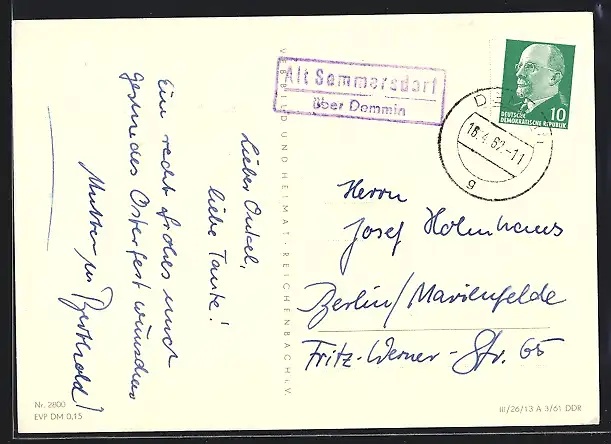 Lieber Onkel,
liebe Tante!
Ein recht frohes und
gesundes Osterfest wünschen
Mutter u. Berthold!
VEB BILD UND HEIMAT · REICHENBACH I. V.
Alt Sommersdorf
über Demmin
DEUTSCHE
DEMOKRATISCHE REPUBLIK
10
18.4.62-11
g
Herrn
Josef Holmhaus
Berlin/Marienfelde
Fritz-Werner-Str. 65
Nr. 2800
EVP DM 0,15
III/26/13 A 3/61 DDR